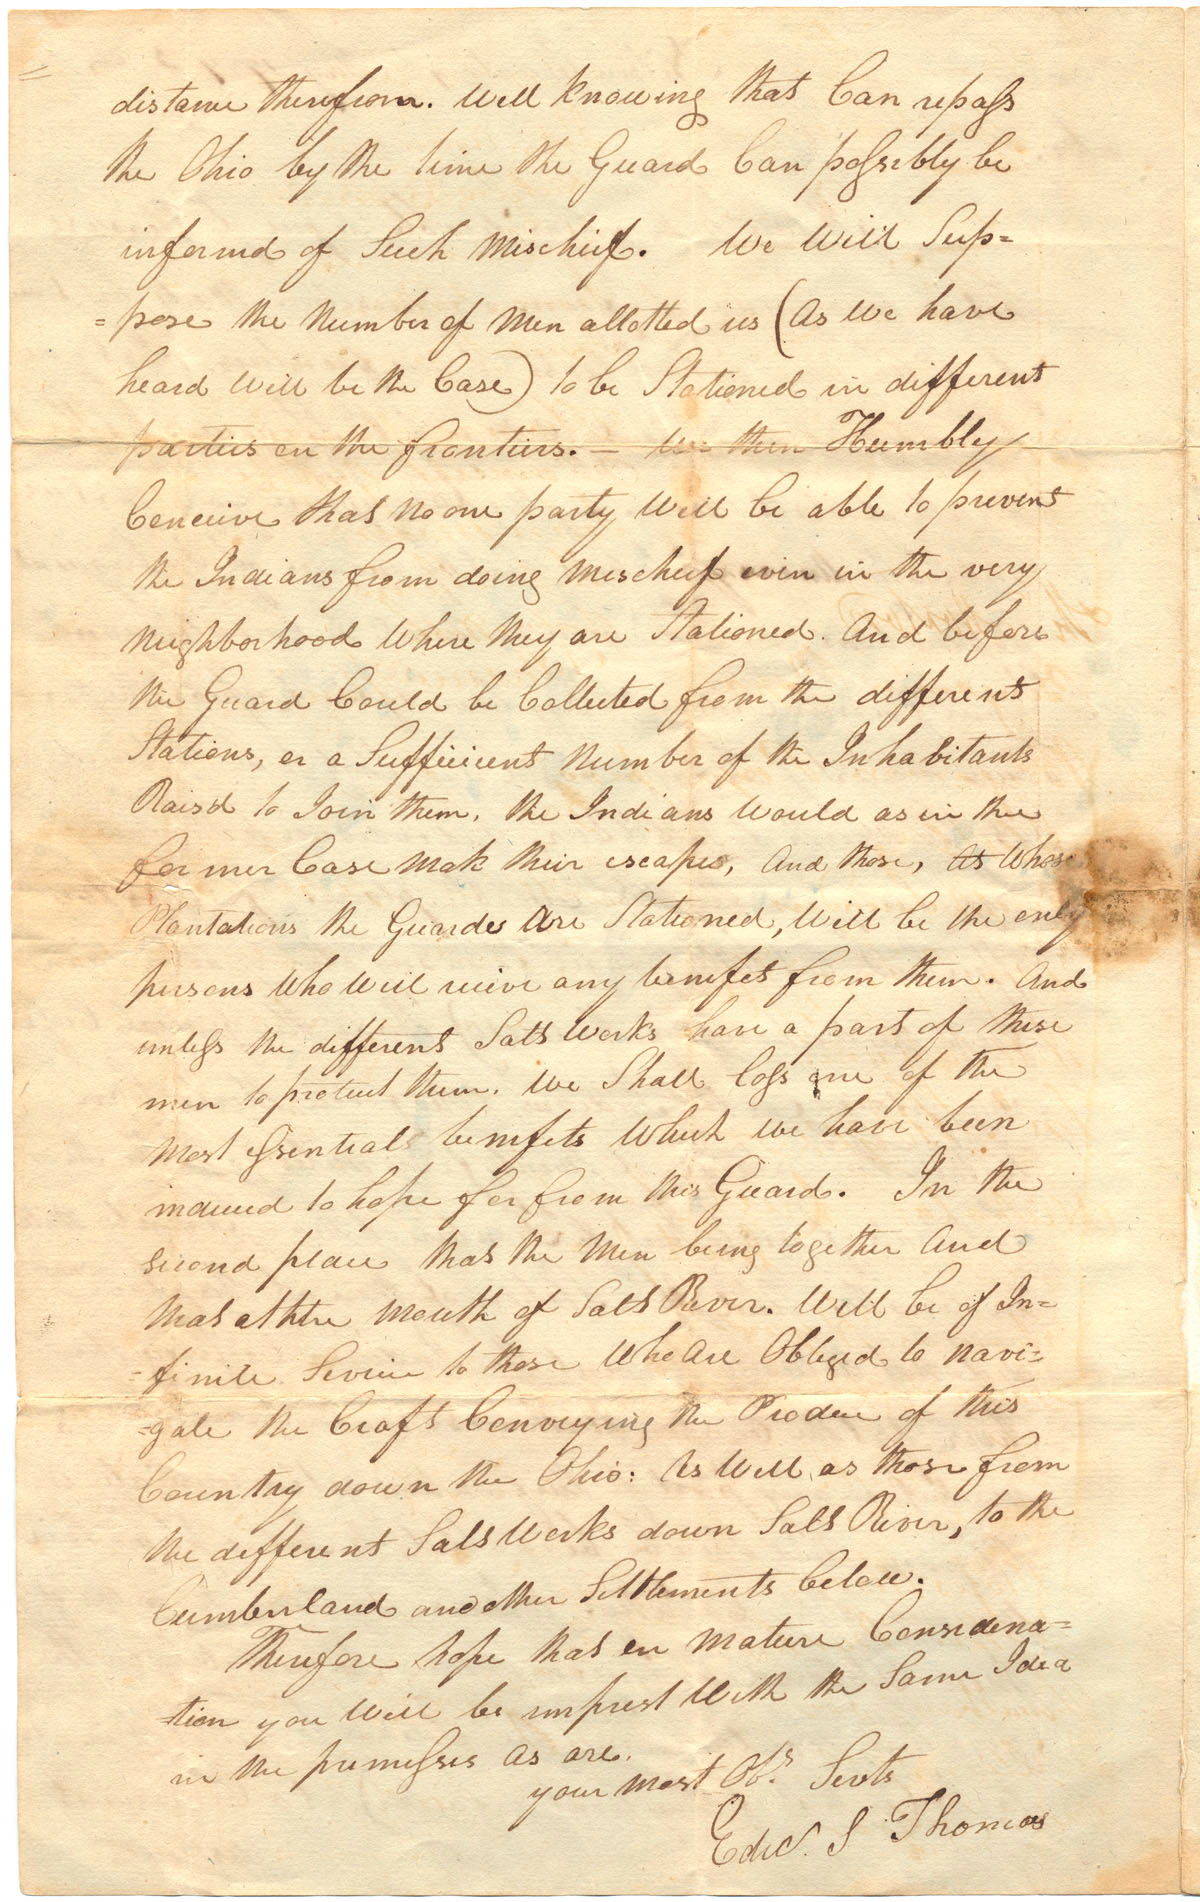 distance therefrom. Well knowing that Can repass
the Ohio by the time the Guard Can possibly be
informd of Such Mischief. We Will Sup=
=pose the Number of Men allotted us (As We have
heard Will be the Case) to be Stationed in different
parties on the frontiers. — We then Humbly
Conceive that no one party Will be able to prevent
the Indians from doing Mischief even in the very
Neighborhood Where they are Stationed. And before
the Guard Could be Collected from the different
Stations, or a Sufficient Number of the Inhabitants
Raisd to Join them, the Indians Would as in the
former Case Mak their escape, And those, At Whose
Plantations the Guards Are Stationed, Will be the only
persons Who Will recive any benifet from them. And
unless the different Salt Works have a part of these
men to protect them. We Shall loss one of the
Most essential benifets Which we have been
induced to hope for from this Guard. In the
second place that the Men being together And
that at the Mouth of Salt River. Will be of In=
=finite Service to those Who Are Obliged to navi=
=gate the Craft Conveying the Produce of this
Country down the Ohio: As Well as those from
the different Salt Works down Salt River, to the
Cumberland and other Settlements below.
Therefore hope that on Mature Considera=
=tion you Will be imprest With the Same Idea
in the premisses As are.
your Most Obt. Servts
Edwd. S Thomas